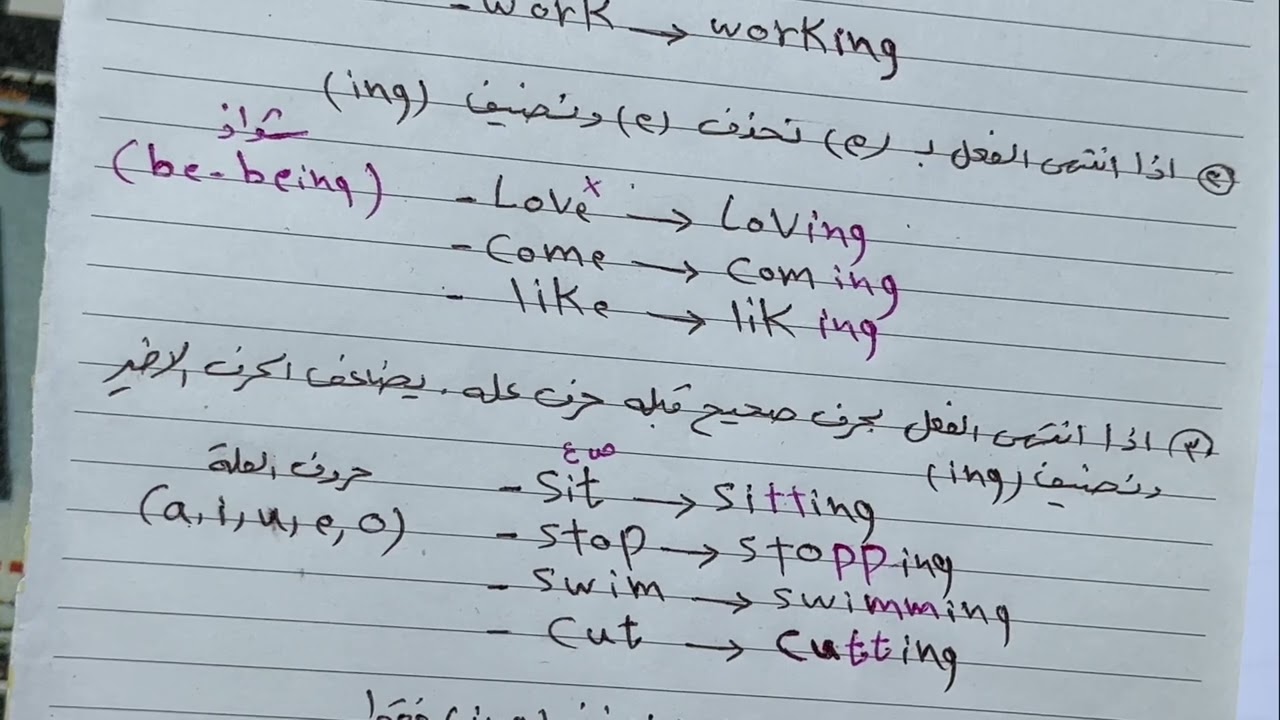 - work → working
② اذا انتهى الفعل بـ (e) تحذف (e) ونضيف (ing)
شواذ
(be - being)
- Love × → Loving
- Come → Coming
- like → liking
③ اذا انتهى الفعل بحرف صحيح قبله حرف عله. يضاعف الحرف الاخير
ونضيف (ing)
حروف العلة
(a, i, u, e, o)
ع ص
- Sit → Sitting
- Stop → Stopping
- Swim → Swimming
- Cut → Cutting